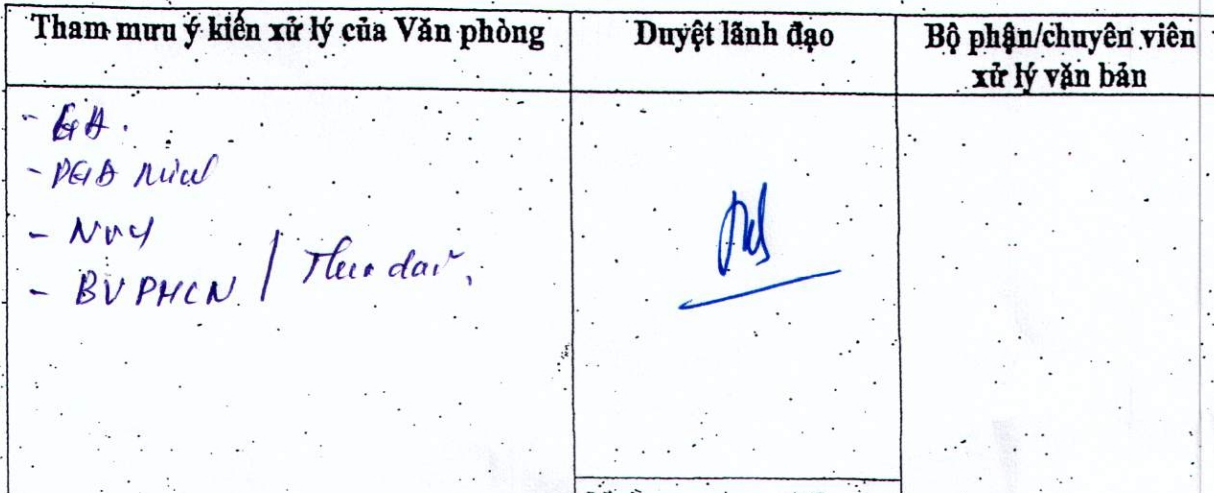 Tham mưu ý kiến xử lý của Văn phòng
Duyệt lãnh đạo
Bộ phận/chuyên viên
xử lý văn bản
- GĐ.
- PGĐ
- NVY
- BVPHCN / Theo dõi,